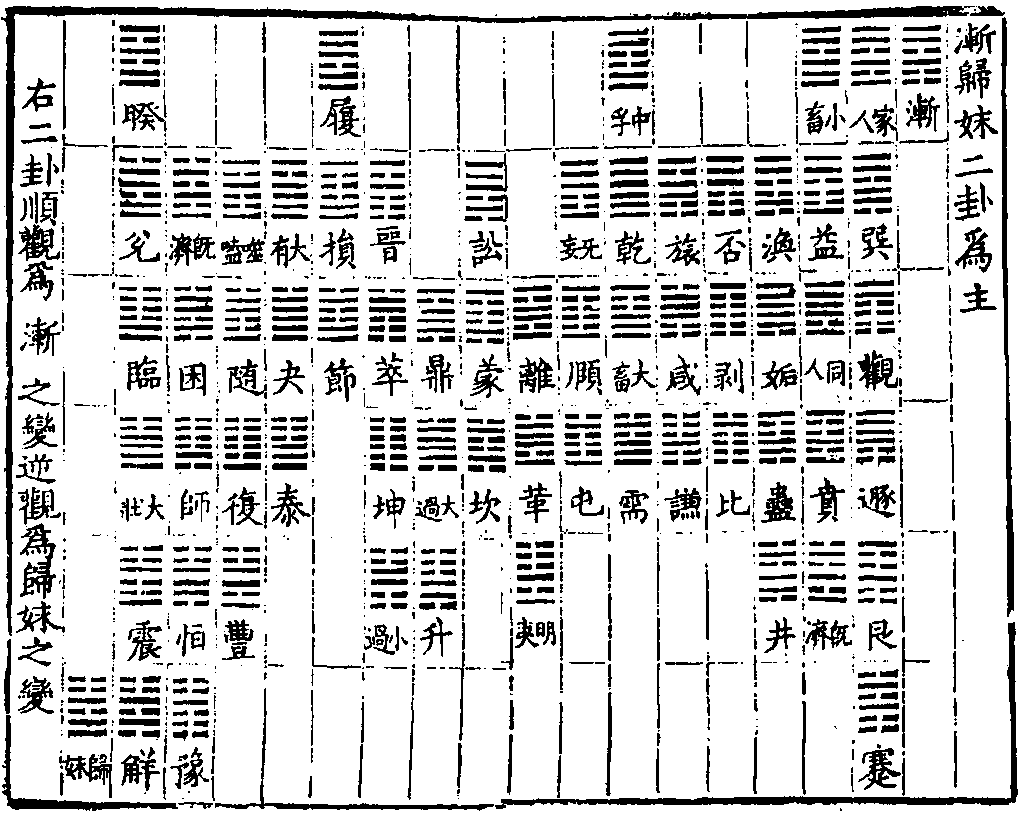 漸歸妹二卦爲主
漸
家人
巽
觀
遯
艮
蹇
小畜
益
同人
賁
既濟
渙
姤
蠱
井
否
剥
比
旅
咸
謙
中孚
乾
大畜
需
无妄
頤
屯
離
革
明夷
訟
蒙
坎
鼎
大過
升
晉
萃
坤
小過
履
損
節
大有
夬
泰
噬嗑
随
復
豐
既濟
困
師
恒
豫
睽
兌
臨
大壯
震
解
歸妹
右二卦順觀爲漸之變逆觀爲歸妹之變